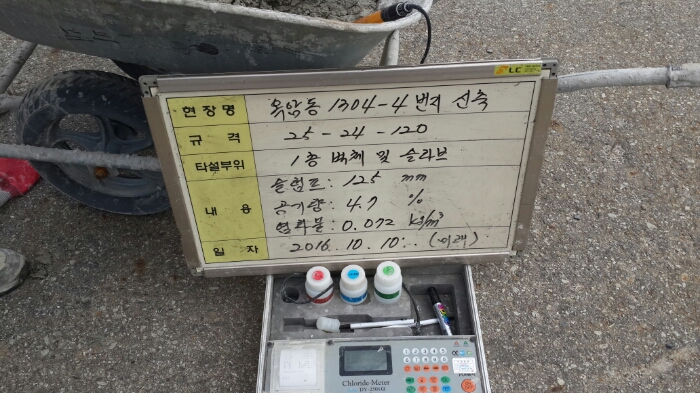 LC
현장명 옥암동 1304-4 번지 신축
규격 25-24-120
타설부위 1층 벽체 및 슬라브
내용 슬럼프: 125 mm
공기량: 4.7 %
염화물: 0.072 kg/m³
일자 2016.10.10.. (미래)
Chloride-Meter